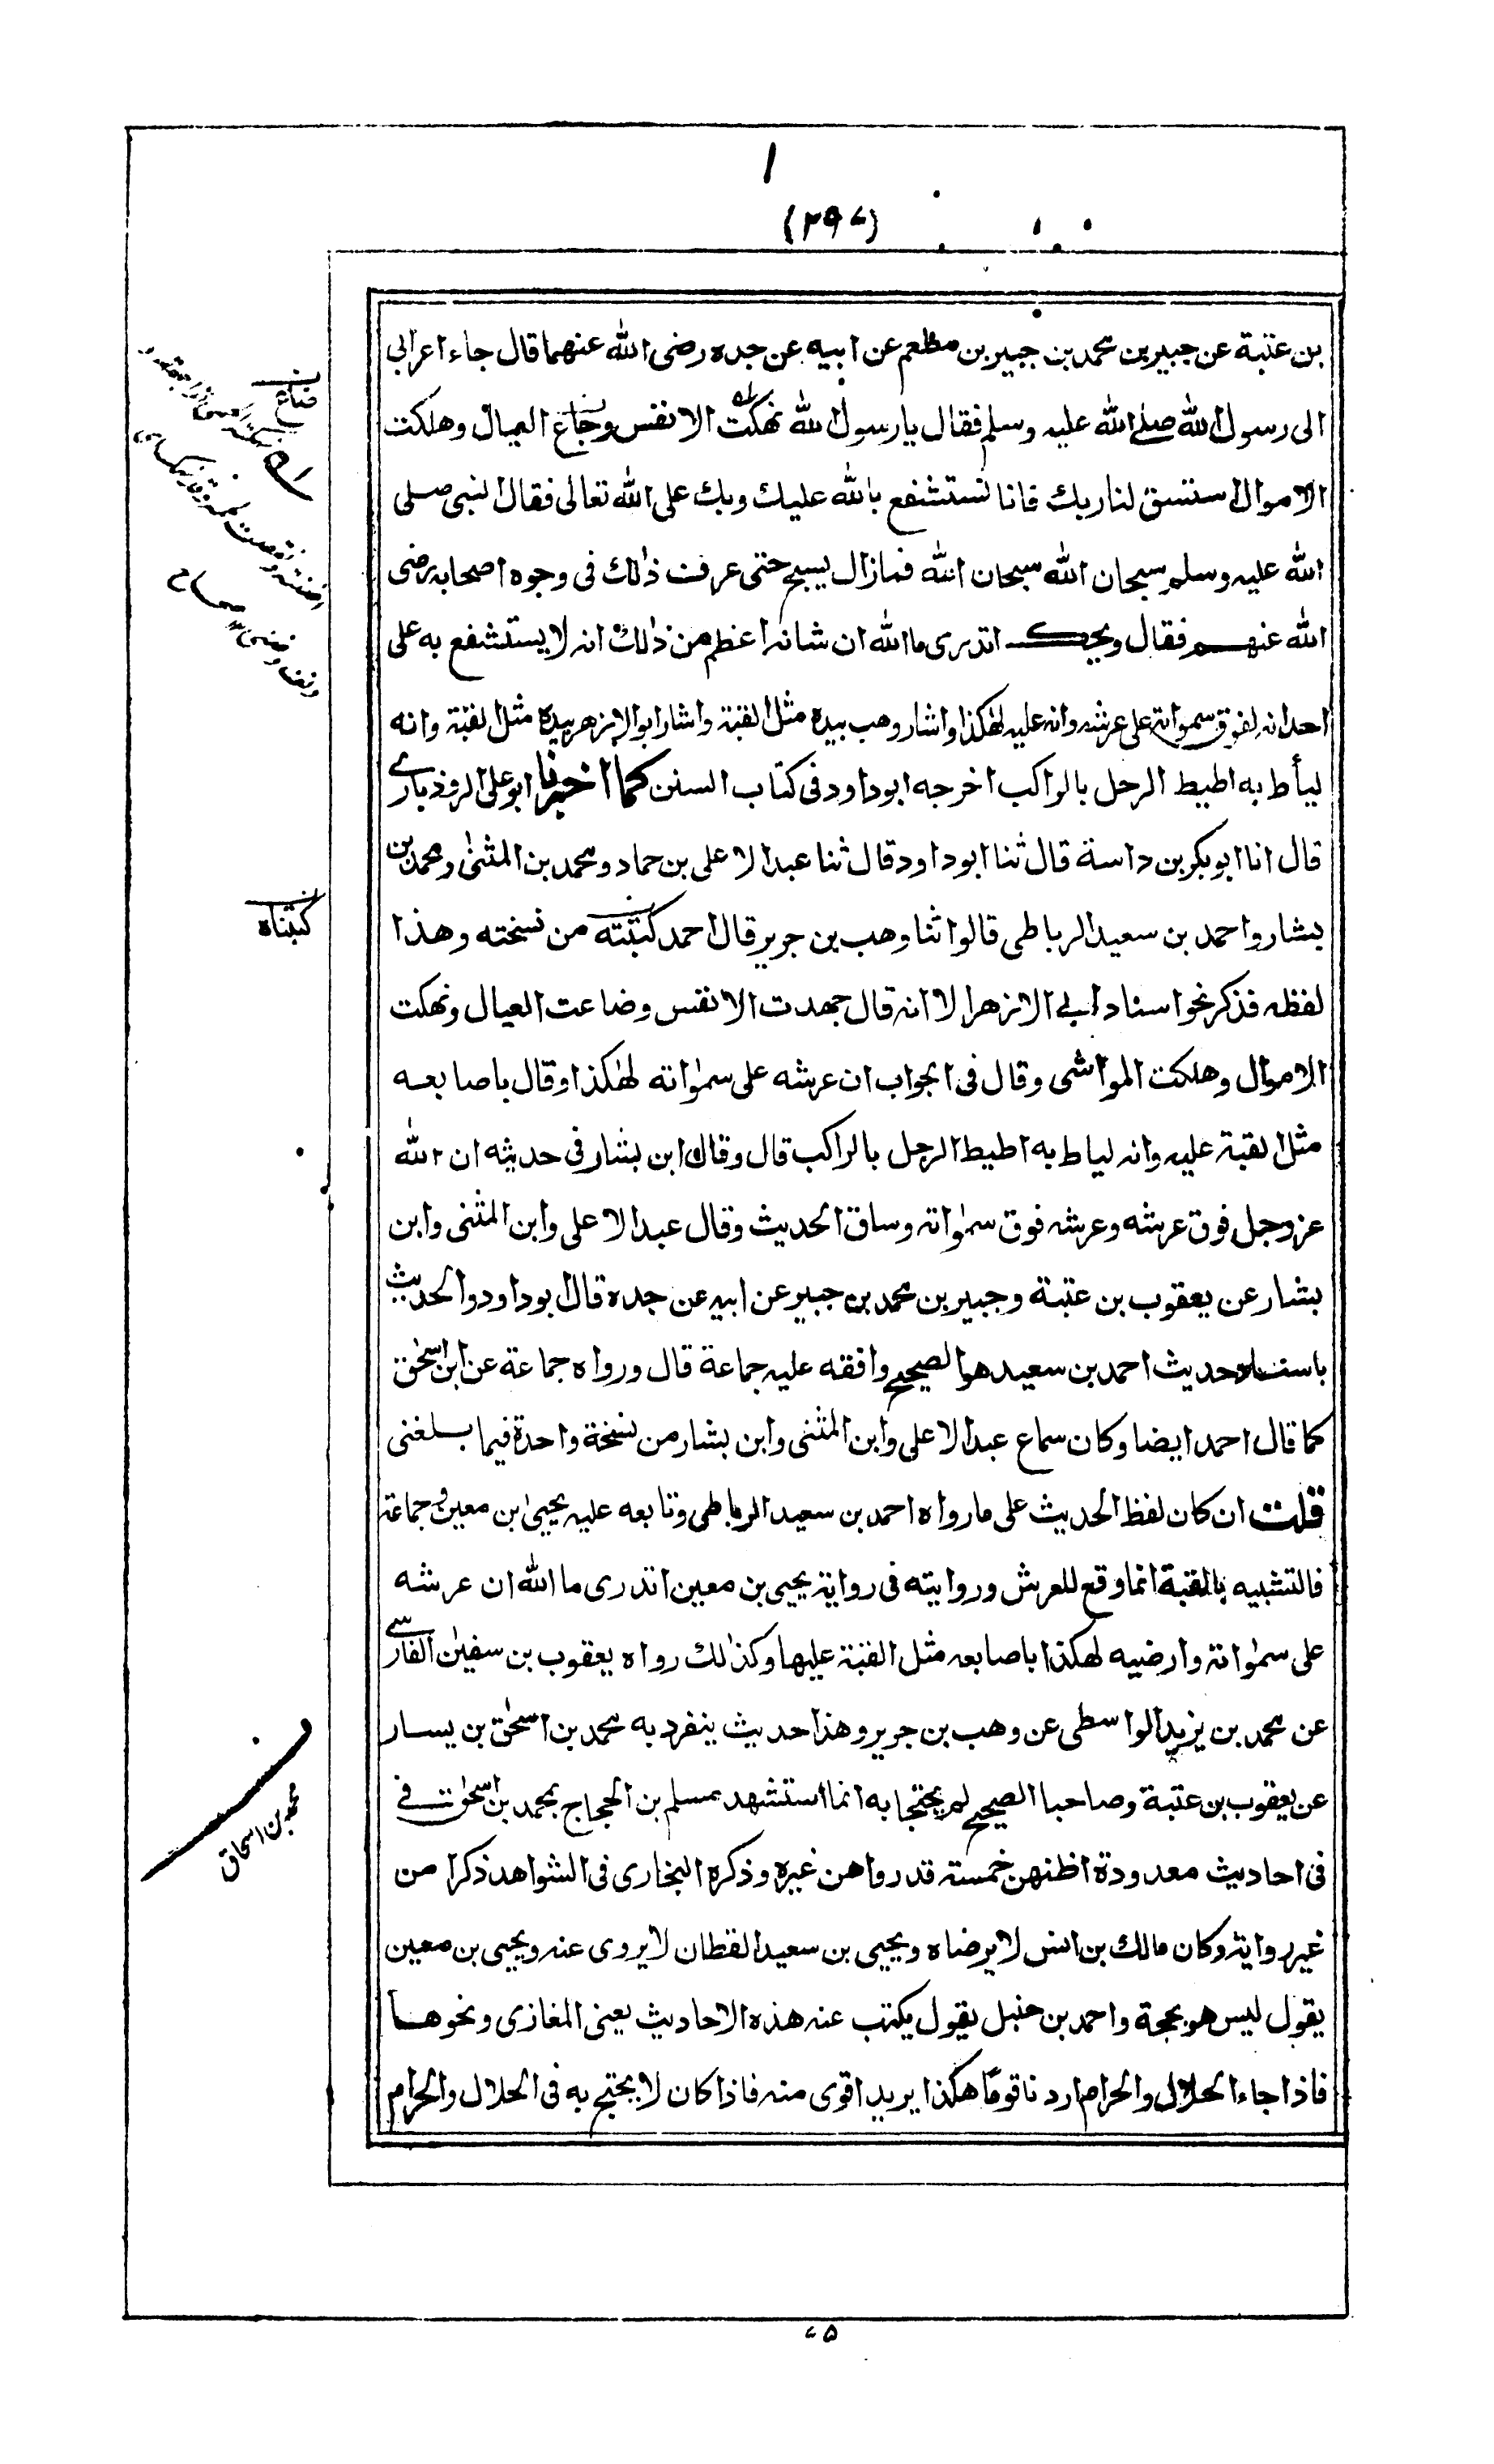 (٢٩٧)
بن عتبة عن جبير بن محمد بن جبير بن مطعم عن ابيه عن جده رضى الله عنهما قال جاء اعرابى
الى رسول الله صلى الله عليه وسلم فقال يا رسول الله نهكت الانفس وجاع العيال وهلكت
الاموال استسق لنا ربك فانا نستشفع بالله عليك وبك على الله تعالى فقال النبى صلى
الله عليه وسلم سبحان الله سبحان الله فمازال يسبح حتى عرف ذلك فى وجوه اصحابه رضى
الله عنهم فقال ويحك اتدرى ما الله ان شانه اعظم من ذلك انه لا يستشفع به على
احد انه لفوق سمواته على عرشه وانه عليه لهكذا واشار وهب بيده مثل القبة واشار ابو الازهر بيده مثل القبة وانه
ليأط به اطيط الرحل بالراكب اخرجه ابو داود فى كتاب السنن كما اخبرنا ابو على الروذبارى
قال انا ابو بكر بن داسة قال ثنا ابو داود قال ثنا عبد الاعلى بن حماد ومحمد بن المثنى ومحمد بن
بشار واحمد بن سعيد الرباطى قالوا ثنا وهب بن جرير قال احمد كتبته من نسخته وهذا
لفظه فذكر نحو اسناد ابى الازهر الا انه قال جهدت الانفس وضاعت العيال ونهكت
الاموال وهلكت المواشى وقال فى الجواب ان عرشه على سمواته لهكذا وقال باصابعه
مثل القبة عليه وانه لياط به اطيط الرحل بالراكب قال وقال ابن بشار فى حديثه ان الله
عز وجل فوق عرشه وعرشه فوق سمواته وساق الحديث وقال عبد الاعلى وابن المثنى وابن
بشار عن يعقوب بن عتبة وجبير بن محمد بن جبير عن ابيه عن جده قال ابو داود والحديث
باسناد حديث احمد بن سعيد هو الصحيح وافقه عليه جماعة قال ورواه جماعة عن ابن اسحٰق
كما قال احمد ايضا وكان سماع عبد الاعلى وابن المثنى وابن بشار من نسخة واحدة فيما بلغنى
قلت ان كان لفظ الحديث على ما رواه احمد بن سعيد الرباطى وتابعه عليه يحيى ابن معين وجماعة
فالتشبيه بالقبة انما وقع للعرش وروايته فى رواية يحيى بن معين اتدرى ما الله ان عرشه
على سمواته وارضيه لهكذا باصابعه مثل القبة عليها وكذلك رواه يعقوب بن سفيٰن الفارسى
عن محمد بن يزيد الواسطى عن وهب بن جرير وهذا حديث ينفرد به محمد بن اسحٰق بن يسار
عن يعقوب بن عتبة وصاحبا الصحيح لم يحتجا به انما استشهد مسلم بن الحجاج بمحمد بن اسحٰق فى
فى احاديث معدودة اظنهن خمسة قد رواهن غيره وذكره البخارى فى الشواهد ذكرا من
غير رواية وكان مالك بن انس لا يرضاه ويحيى بن سعيد القطان لا يروى عنه ويحيى بن معين
يقول ليس هو بحجة واحمد بن حنبل يقول يكتب عنه هذه الاحاديث يعنى المغازى ونحوها
فاذا جاء الحلال والحرام اردنا قومًا هكذا يريد اقوى منه فاذا كان لا يحتج به فى الحلال والحرام
ضاع
كتبناه
محمد بن اسحاق
٧٥